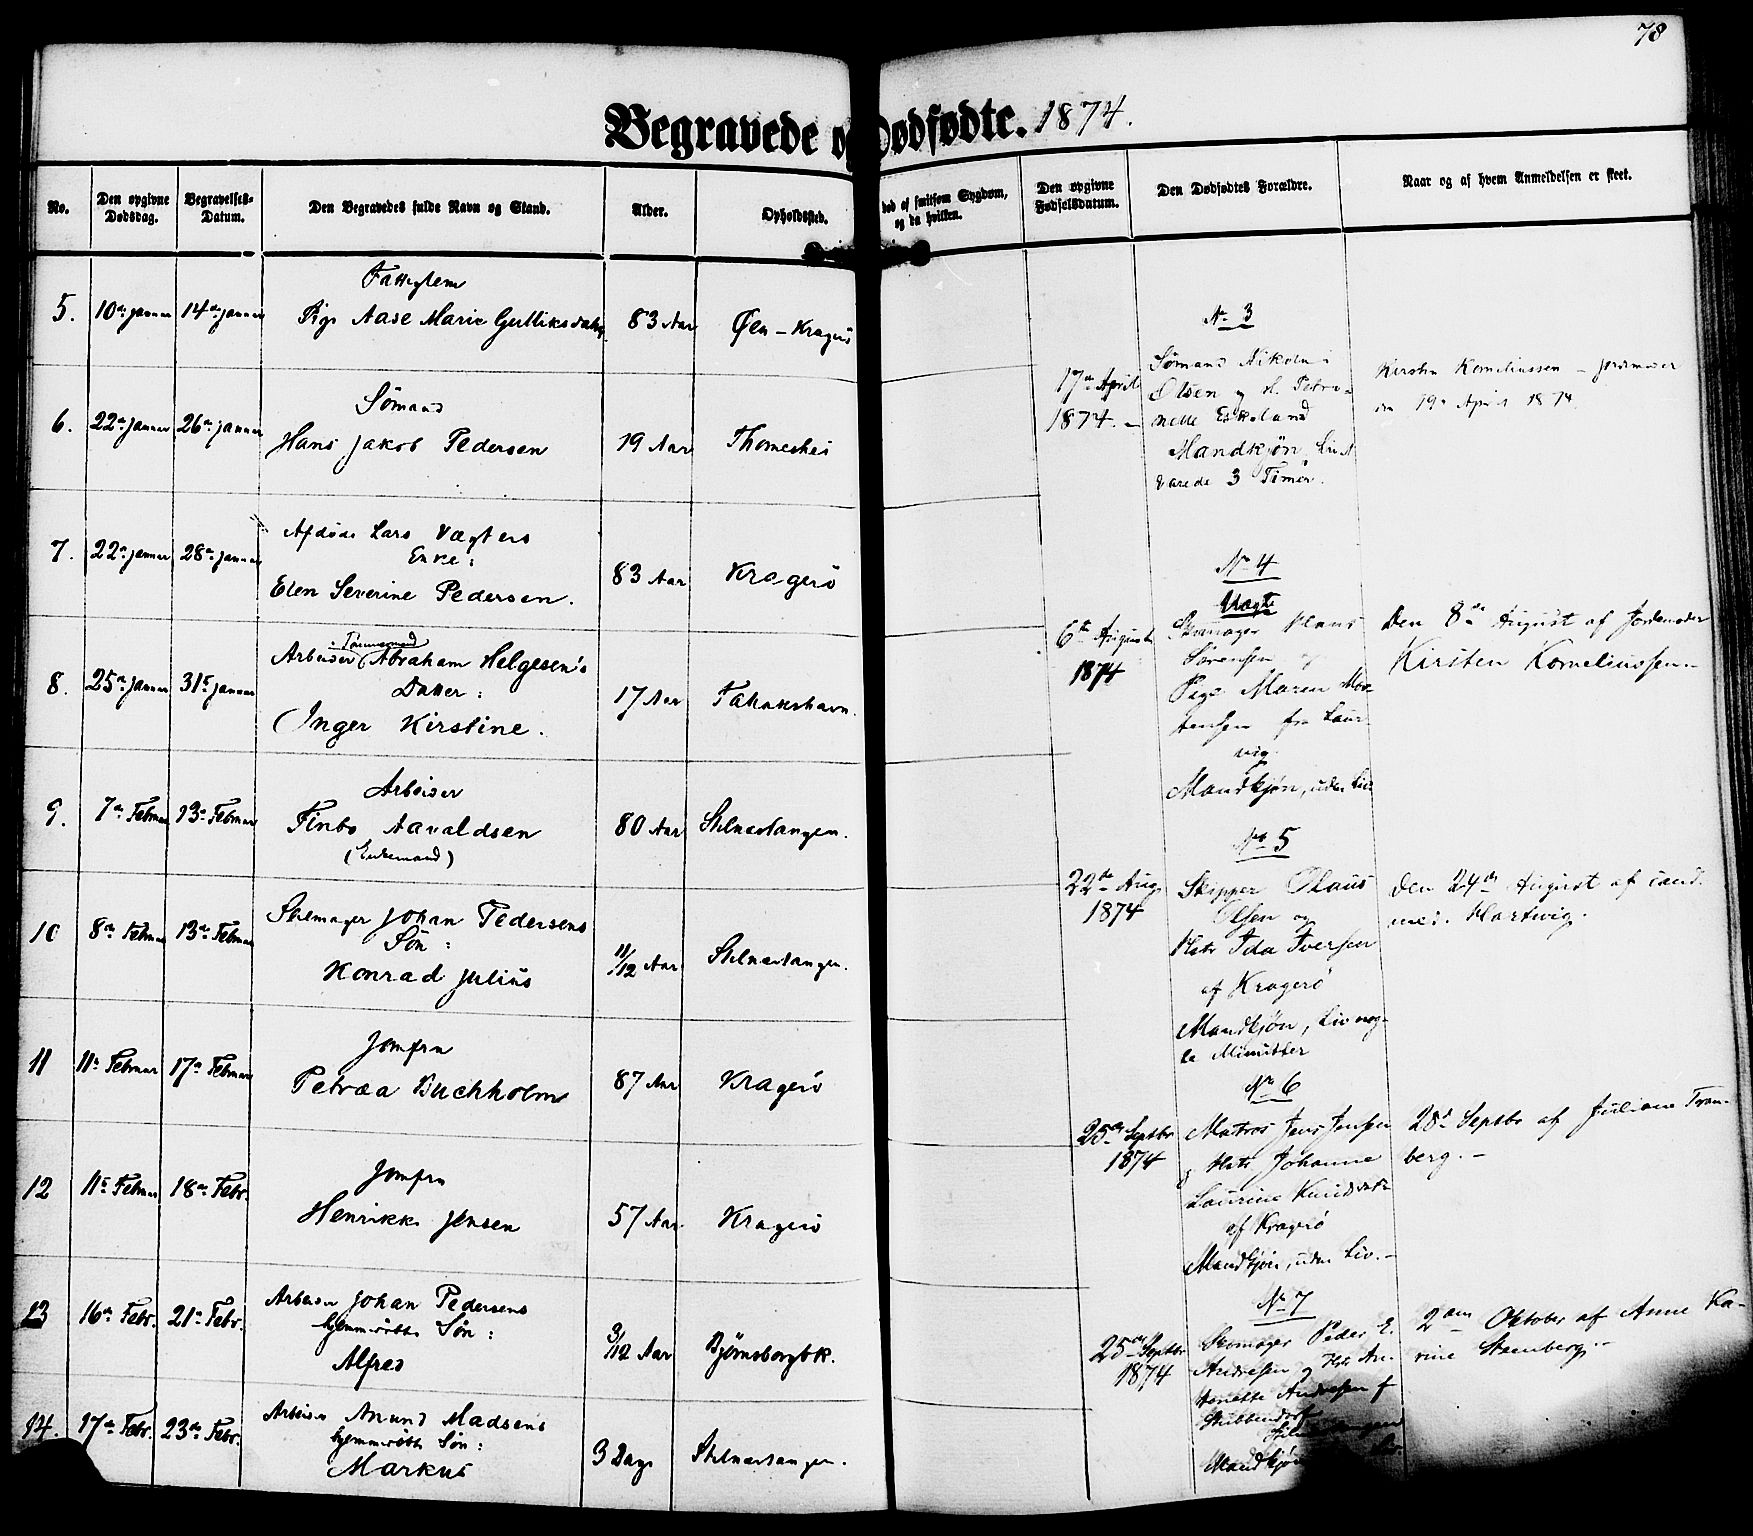 78
Begravede og Dødfødte. 1874.
No.
Den opgivne Dødsdag.
Begravelses-Datum.
Den Begravedes fulde Navn og Stand.
Alder.
Opholdssted.
død af smitsom Sygdom, og da hvilken.
Den opgivne Fødselsdatum.
Den Dødfødtes Forældre.
Naar og af hvem Anmeldelsen er skeet.
Fattiglem
5. 10de januar 14de januar Pige Aase Marie Gulliksdatter 83 Aar Øen - Kragerø
Sømand
6. 22de januar 26de januar Hans Jakob Pedersen 19 Aar Thomeshei
Afdøde Lars Vægters
Enke:
7. 22de januar 28de januar Elen Severine Pedersen. 83 Aar Kragerø
Tømmermand
Arbeider Abraham Helgesen's
Datter:
8. 25de januar 31te januar Inger Kirstine. 17 Aar
Arbeider
9. 7de Februar 13de Februar Aavaldsen 80 Aar Stilnestangen.
(Enkemand)
Skomager Johan Pedersens
Søn:
10 8de Februar 13de Februar Konrad Julius 11/12 Aar Stilnestangen.
Jomfru
11 11te Februar 17de Februar Petræa Buchholm 87 Aar Kragerø
Jomfru
12 11te Februar 18de Febr. Henrikke Jensen 57 Aar. Kragerø
Arbeider Johan Pedersens
hjemmedøbte Søn:
13 16de Febr. 21de Febr. Alfred 3/12 Aar Bjørnsborgbk.
Arbeider Anund Madsens
hjemmedøbte Søn:
14. 17de Febr. 23de Febr. Markus 3 Dage Stilnestangen.
No 3
17de April
1874. -
Sømand Nikolai
Olsen og H. Petro-
nelle Eskeland
Mandkjøn, Livet
varede 3 Timer.
Kirsten Korneliussen - jordmoder
den 19de April 1874.
No 4
6te August
1874
Skomager Klaus
Sørensen og
Pige Maren Mor-
tensen fra Laur-
vig.
Mandkjøn, uden Liv
Den 8de August af Jordmoder
Kirsten Korneliussen. -
No 5
22de Aug.
1874
Skipper Olaus
Olsen og
Hstr Ida Iversen
af Kragerø
Mandkjøn, Liv nog-
le Minutter
Den 24de August af cand.
med. Hartvig.
No 6
25de Septbr
1874
Matros Jens Jensen
og Hstr Johanne
Laurine Knudsdtr
af Kragerø
Mandkjøn, uden Liv. -
28de Septbr af Juliane Tran-
berg. -
No 7
25de Septbr
1874
Skomager Peder E.
Andresen og Hstr An-
tonette Andresen f
Stubbendorf
Stilnestangen
Mandkjøn
2den Oktober af Anne Ka-
rine Steenberg. -